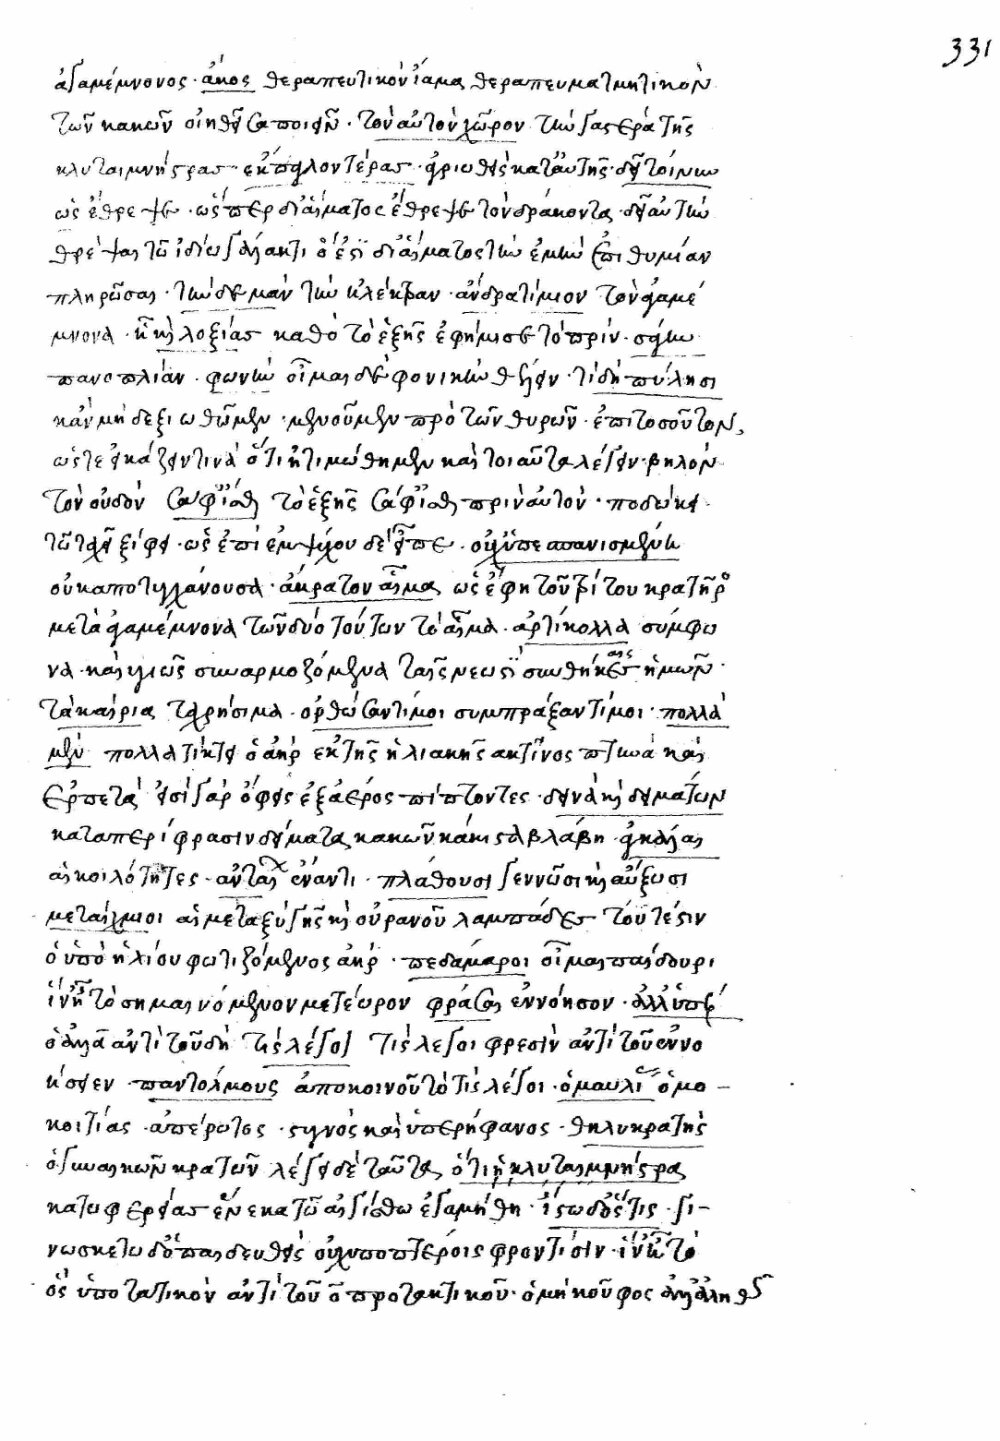 331
ἀγαμέμνονος · ἄκος θεραπευτικὸν ἴαμα θεραπευματμητικὸν
τῶν κακῶν οἰηθεῖσα ποιεῖν · τὸν αὐτὸν χῶρον τὴν γαστέρα τῆς
κλυταιμνήστρας · ἐκπαγλον τέρας · ὁριωθεὶς κατ' αὐτῆς · δεῖ τοίνυν
ὡς ἔθρεψε · ὥσπερ δι' αἵματος ἔθρεψε τὸν δράκοντα · δεῖ αὐτὴν
θρέψαι τῶ ἰδίω γάλακτι ὅ ἐστι δι' αἵματος τὴν ἐμὴν ἐπιθυμίαν
πληρῶσαι · τὴν δὲ μὰν τὴν ἠλέκτραν · ἀνδρα τίμιον τὸν ἀγαμέ
μνονα · καὶ λοξίας καθὸ τὸ ἑξῆς ἐφήμισε τὸ πρίν · σάγην
πανοπλίαν · φωνὴν οἶμαι δὲ φονικὴν θέλειν · τί δὴ πύλησι
κἂν μὴ δεξιωθῶμεν · μενοῦμεν πρὸ τῶν θυρῶν · ἐπιτοσοῦτον,
ὥστε εἰκάζειν τινὰ ὅτι ἠτιμώθημεν καὶ τοιαῦτα λέγειν · βηλὸν
τὸν οὐδὸν σάφ' ἴσθι τὸ ἑξῆς σάφ' ἴσθι πρὶν αὐτὸν · ποδώκει
τῶ ταχεῖ ξίφει · ὡς ἐπὶ ἐμψύχου δὲ εἶπε · οὐχ ὑπεσπανισμένη
οὐκ ἀποτυγχάνουσα · ἄκρατον αἷμα ὡς ἔφη τοῦ τρίτου κρατῆρος
μετὰ ἀγαμέμνονα τῶν δύο τούτων τὸ αἷμα · ἀρτίκολλα σύμφω
να · καὶ ὑγιῶς συναρμοζόμενα ταῖς νεωστὶ συνθήκαις ἡμῶν ·
τὰ καίρια τὰ χρήσιμα · ὀρθώσαντί μοι συμπράξαντί μοι · πολλὰ
μὲν πολλὰ τίκτει ὁ ἀὴρ ἐκ τῆς ἡλιακῆς ἀκτῖνος πτηνὰ καὶ
ἑρπετὰ εἰσὶ γὰρ ὄφεις ἐξ ἀέρος πίπτοντες · δεινὰ καὶ δειμάτων
κατὰ περίφρασιν δείματα κακῶν κάκιστα βλάβη · ἀγκάλαι
αἱ κοιλότητες · ἀνταῖαι ἐναντι · πλάθουσι γεννῶσι καὶ αὔξουσι
μεταίχμιοι αἱ μεταξὺ γῆς καὶ οὐρανοῦ λαμπάδες τουτέστιν
ὁ ὑπὸ ἡλίου φωτιζόμενος ἀήρ · πεδάμαροι οἶμαι πασδουρι
ἵν' ἦ τὸ σημαινόμενον μετέωρον φράσαι ἐννόησον · ἀλλ' ὑπὲρ
ὁ ἀλλὰ ἀντὶ τοῦ δή τίς λέγοι τίς λέγοι φρεσὶν ἀντὶ τοῦ ἐννο
ήσειεν · παντόλμους ἀποκοινοῦ τὸ τίς λέγοι · ὁμαυλί ὁμο –
κοιτίας · ἀπέρωτος · στυγνὸς καὶ ὑπερήφανος · θηλυκρατὴς
ὁ γυναικῶν κρατῶν λέγει δὲ ταῦτα ὅτι ἡ κλυταιμνήστρα
κατωφερείας ἕνεκα τῶ αἰγίσθω ἐγαμήθη · ἴστω δ' ὅστις · γι–
νωσκέτω δ' ὁ παιδευθεὶς οὐχ ὑποπτέροις φροντίσιν · ἵν' ἦ τὸ
ὃς ὑποτακτικὸν ἀντὶ τοῦ ὁ προτακτικοῦ · ὁ μὴ κοῦφος ἀλλ' ἀληθ